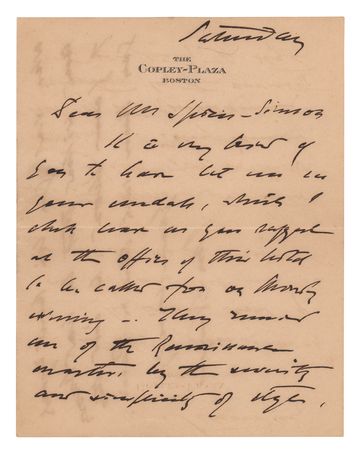 Saturday
THE
COPLEY-PLAZA
BOSTON
Dear Mr Spicer-Simson
It is very kind of
you to have let me see
your medals, which I
shall leave as you suggest
at the office of this hotel
to be called for on Monday
morning - They remind
me of the Renaissance
masters, by the security
and simplicity of style,